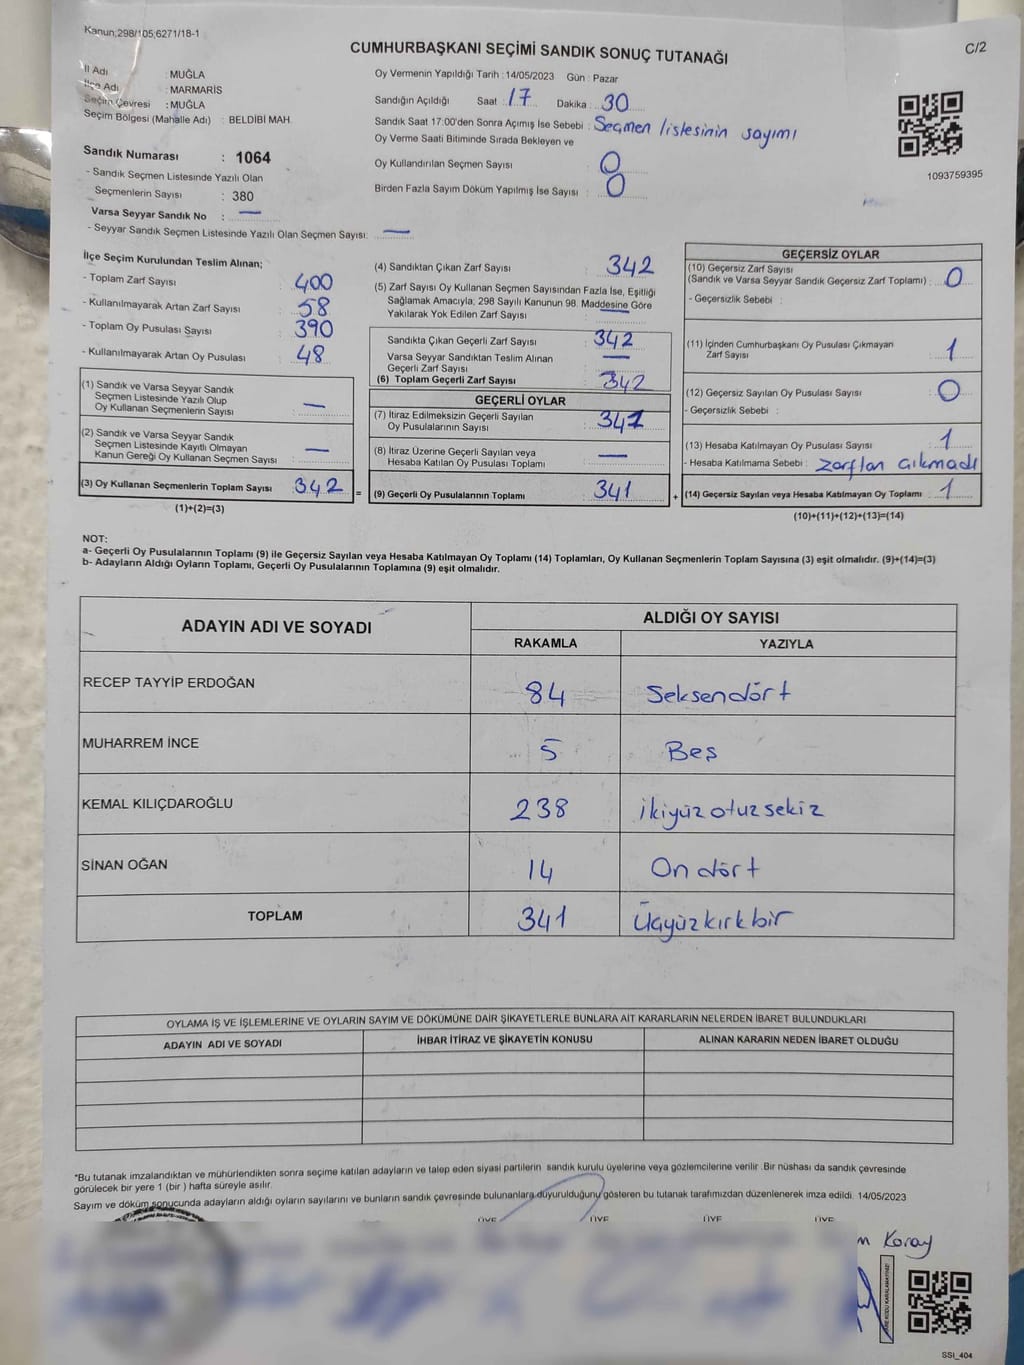 Kanun;298/105;6271/18-1
C/2
CUMHURBAŞKANI SEÇİMİ SANDIK SONUÇ TUTANAĞI
İl Adı : MUĞLA
İlçe Adı : MARMARİS
Seçim Çevresi : MUĞLA
Seçim Bölgesi (Mahalle Adı) : BELDİBİ MAH.
Sandık Numarası : 1064
- Sandık Seçmen Listesinde Yazılı Olan
Seçmenlerin Sayısı : 380
Varsa Seyyar Sandık No : —
- Seyyar Sandık Seçmen Listesinde Yazılı Olan Seçmen Sayısı: —
Oy Vermenin Yapıldığı Tarih : 14/05/2023 Gün : Pazar
Sandığın Açıldığı Saat : 17 Dakika : 30
Sandık Saat 17:00'den Sonra Açımış İse Sebebi : Seçmen listesinin sayımı
Oy Verme Saati Bitiminde Sırada Bekleyen ve
Oy Kullandırılan Seçmen Sayısı : 0
Birden Fazla Sayım Döküm Yapılmış İse Sayısı : 0
1093759395
İlçe Seçim Kurulundan Teslim Alınan;
- Toplam Zarf Sayısı : 400
- Kullanılmayarak Artan Zarf Sayısı : 58
- Toplam Oy Pusulası Sayısı : 390
- Kullanılmayarak Artan Oy Pusulası : 48
(1) Sandık ve Varsa Seyyar Sandık
Seçmen Listesinde Yazılı Olup
Oy Kullanan Seçmenlerin Sayısı : —
(2) Sandık ve Varsa Seyyar Sandık
Seçmen Listesinde Kayıtlı Olmayan
Kanun Gereği Oy Kullanan Seçmen Sayısı : —
(3) Oy Kullanan Seçmenlerin Toplam Sayısı : 342 =
(1)+(2)=(3)
(4) Sandıktan Çıkan Zarf Sayısı : 342
(5) Zarf Sayısı Oy Kullanan Seçmen Sayısından Fazla İse, Eşitliği
Sağlamak Amacıyla, 298 Sayılı Kanunun 98. Maddesine Göre
Yakılarak Yok Edilen Zarf Sayısı : —
Sandıkta Çıkan Geçerli Zarf Sayısı : 342
Varsa Seyyar Sandıktan Teslim Alınan
Geçerli Zarf Sayısı : —
(6) Toplam Geçerli Zarf Sayısı : 342
GEÇERLİ OYLAR
(7) İtiraz Edilmeksizin Geçerli Sayılan
Oy Pusulalarının Sayısı : 341
(8) İtiraz Üzerine Geçerli Sayılan veya
Hesaba Katılan Oy Pusulası Toplamı : —
(9) Geçerli Oy Pusulalarının Toplamı : 341 +
GEÇERSİZ OYLAR
(10) Geçersiz Zarf Sayısı
(Sandık ve Varsa Seyyar Sandık Geçersiz Zarf Toplamı) : 0
- Geçersizlik Sebebi :
(11) İçinden Cumhurbaşkanı Oy Pusulası Çıkmayan
Zarf Sayısı : 1
(12) Geçersiz Sayılan Oy Pusulası Sayısı : 0
- Geçersizlik Sebebi :
(13) Hesaba Katılmayan Oy Pusulası Sayısı : 1
- Hesaba Katılmama Sebebi : zarftan çıkmadı
(14) Geçersiz Sayılan veya Hesaba Katılmayan Oy Toplamı : 1
(10)+(11)+(12)+(13)=(14)
NOT:
a- Geçerli Oy Pusulalarının Toplamı (9) ile Geçersiz Sayılan veya Hesaba Katılmayan Oy Toplamı (14) Toplamları, Oy Kullanan Seçmenlerin Toplam Sayısına (3) eşit olmalıdır. (9)+(14)=(3)
b- Adayların Aldığı Oyların Toplamı, Geçerli Oy Pusulalarının Toplamına (9) eşit olmalıdır.
ADAYIN ADI VE SOYADI ALDIĞI OY SAYISI
RAKAMLA YAZIYLA
RECEP TAYYİP ERDOĞAN 84 Seksendört
MUHARREM İNCE 5 Beş
KEMAL KILIÇDAROĞLU 238 ikiyüzotuzsekiz
SİNAN OĞAN 14 On dört
TOPLAM 341 Üçyüzkırkbir
OYLAMA İŞ VE İŞLEMLERİNE VE OYLARIN SAYIM VE DÖKÜMÜNE DAİR ŞİKAYETLERLE BUNLARA AİT KARARLARIN NELERDEN İBARET BULUNDUKLARI
ADAYIN ADI VE SOYADI İHBAR İTİRAZ VE ŞİKAYETİN KONUSU ALINAN KARARIN NEDEN İBARET OLDUĞU
*Bu tutanak imzalandıktan ve mühürlendikten sonra seçime katılan adayların ve talep eden siyasi partilerin sandık kurulu üyelerine veya gözlemcilerine verilir. Bir nüshası da sandık çevresinde
görülecek bir yere 1 (bir) hafta süreyle asılır.
Sayım ve döküm sonucunda adayların aldığı oyların sayılarını ve bunların sandık çevresinde bulunanlara duyurulduğunu gösteren bu tutanak tarafımızdan düzenlenerek imza edildi. 14/05/2023
ÜYE ÜYE ÜYE ÜYE
Koray
SSI_404